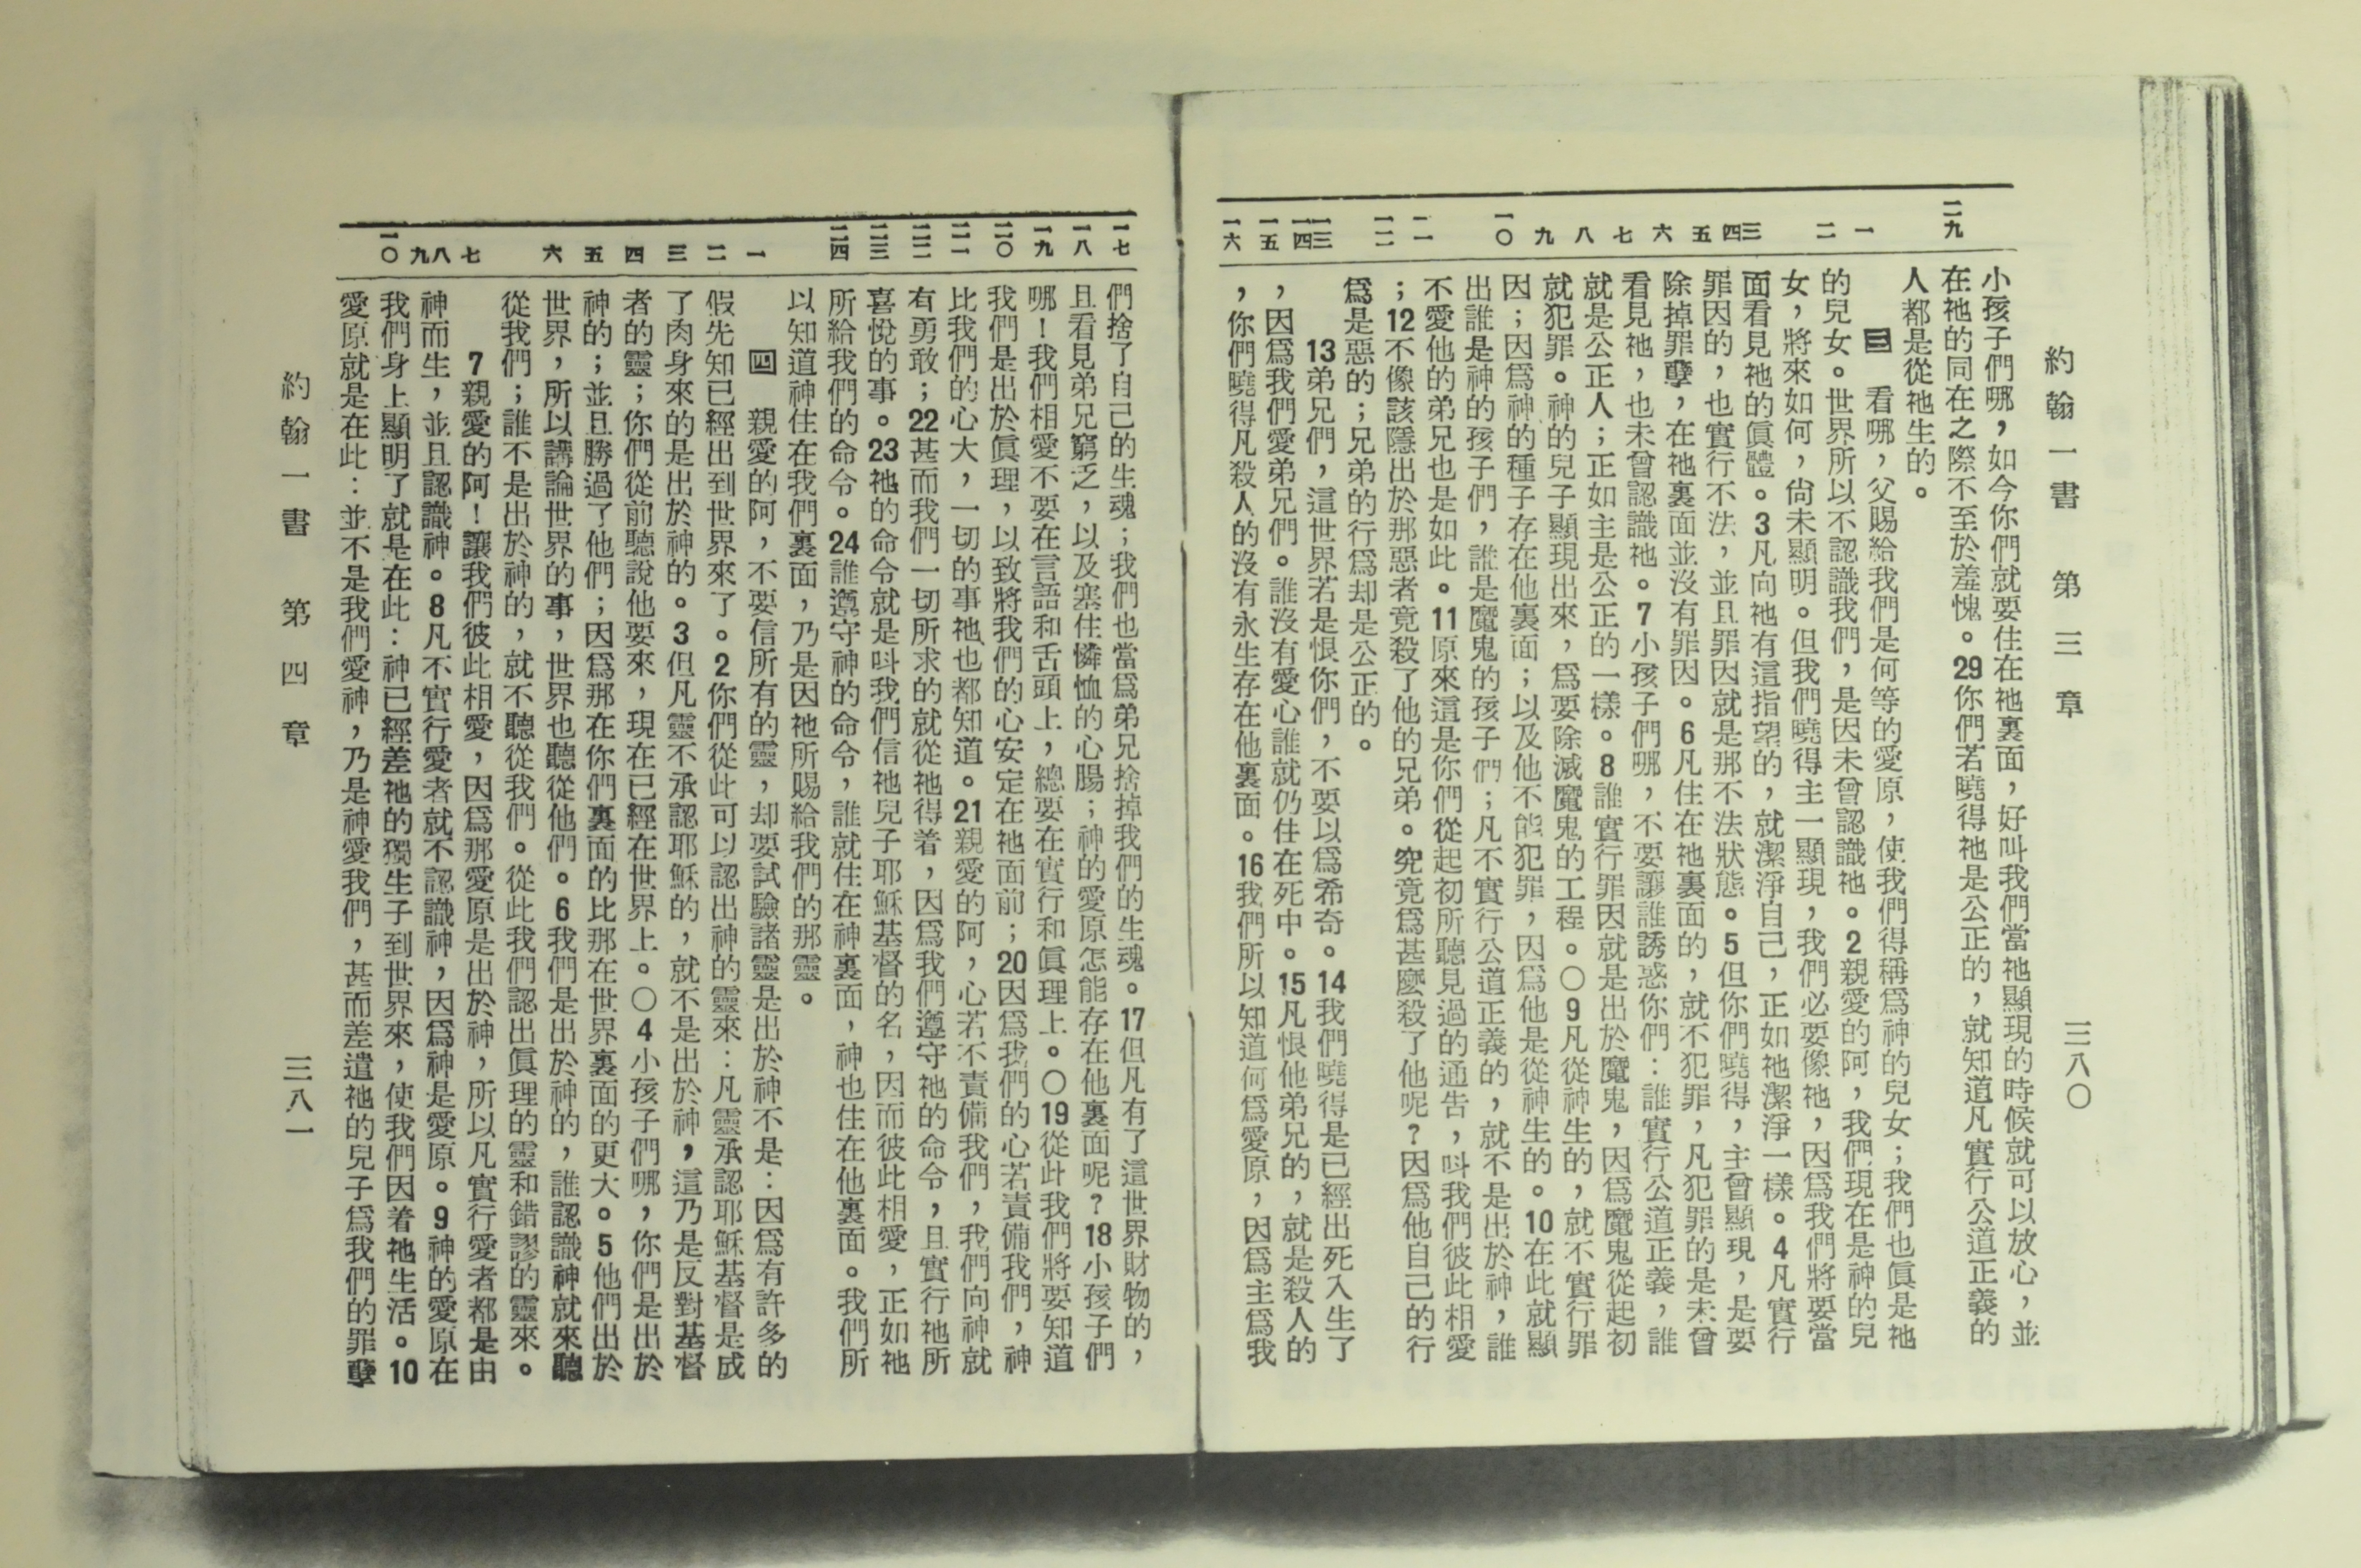 約翰一書　第三章　三八〇
二九　一　二　三四　五　六　七　八　九　一〇　一一　一二　一三　一四　一五　一六
小孩子們哪，如今你們就要住在祂裏面，好叫我們當祂顯現的時候就可以放心，並
在祂的同在之際不至於羞愧。29你們若曉得祂是公正的，就知道凡實行公道正義的
人都是從祂生的。
三　看哪，父賜給我們是何等的愛原，使我們得稱爲神的兒女；我們也眞是祂
的兒女。世界所以不認識我們，是因未曾認識祂。2親愛的阿，我們現在是神的兒
女，將來如何，尙未顯明。但我們曉得主一顯現，我們必要像祂，因爲我們將要當
面看見祂的眞體。3凡向祂有這指望的，就潔淨自己，正如祂潔淨一樣。4凡實行
罪因的，也實行不法，並且罪因就是那不法狀態。5但你們曉得，主曾顯現，是要
除掉罪孽，在祂裏面並沒有罪因。6凡住在祂裏面的，就不犯罪，凡犯罪的是未曾
看見祂，也未曾認識祂。7小孩子們哪，不要讓誰誘惑你們：誰實行公道正義，誰
就是公正人；正如主是公正的一樣。8誰實行罪因就是出於魔鬼，因爲魔鬼從起初
就犯罪。神的兒子顯現出來，爲要除滅魔鬼的工程。〇9凡從神生的，就不實行罪
因；因爲神的種子存在他裏面；以及他不能犯罪，因爲他是從神生的。10在此就顯
出誰是神的孩子們，誰是魔鬼的孩子們；凡不實行公道正義的，就不是出於神，誰
不愛他的弟兄也是如此。11原來這是你們從起初所聽見過的通告，呌我們彼此相愛
；12不像該隱出於那惡者竟殺了他的兄弟。究竟爲甚麽殺了他呢？因爲他自己的行
爲是惡的；兄弟的行爲却是公正的。
13弟兄們，這世界若是恨你們，不要以爲希奇。14我們曉得是已經出死入生了
，因爲我們愛弟兄們。誰沒有愛心誰就仍住在死中。15凡恨他弟兄的，就是殺人的
，你們曉得凡殺人的沒有永生存在他裏面。16我們所以知道何爲愛原，因爲主爲我
一七　一八　一九　二〇　二一　二二　二三　二四　一　二　三　四　五　六　七　八　九　一〇
們捨了自己的生魂；我們也當爲弟兄捨掉我們的生魂。17但凡有了這世界財物的，
且看見弟兄窮乏，以及塞住憐恤的心腸；神的愛原怎能存在他裏面呢？18小孩子們
哪！我們相愛不要在言語和舌頭上，總要在實行和眞理上。〇19從此我們將要知道
我們是出於眞理，以致將我們的心安定在祂面前；20因爲我們的心若責備我們，神
比我們的心大，一切的事祂也都知道。21親愛的阿，心若不責備我們，我們向神就
有勇敢；22甚而我們一切所求的就從祂得着，因爲我們遵守祂的命令，且實行祂所
喜悅的事。23祂的命令就是呌我們信祂兒子耶穌基督的名，因而彼此相愛，正如祂
所給我們的命令。24誰遵守神的命令，誰就住在神裏面，神也住在他裏面。我們所
以知道神住在我們裏面，乃是因祂所賜給我們的那靈。
四　親愛的阿，不要信所有的靈，却要試驗諸靈是出於神不是：因爲有許多的
假先知已經出到世界來了。2你們從此可以認出神的靈來：凡靈承認耶穌基督是成
了肉身來的是出於神的。3但凡靈不承認耶穌的，就不是出於神，這乃是反對基督
者的靈；你們從前聽說他要來，現在已經在世界上。〇4小孩子們哪，你們是出於
神的；並且勝過了他們；因爲那在你們裏面的比那在世界裏面的更大。5他們出於
世界，所以講論世界的事，世界也聽從他們。6我們是出於神的，誰認識神就來聽
從我們；誰不是出於神的，就不聽從我們。從此我們認出眞理的靈和錯謬的靈來。
7親愛的阿！讓我們彼此相愛，因爲那愛原是出於神，所以凡實行愛者都是由
神而生，並且認識神。8凡不實行愛者就不認識神，因爲神是愛原。9神的愛原在
我們身上顯明了就是在此：神已經差祂的獨生子到世界來，使我們因着祂生活。10
愛原就是在此：並不是我們愛神，乃是神愛我們，甚而差遣祂的兒子爲我們的罪孽
約翰一書　第四章　三八一